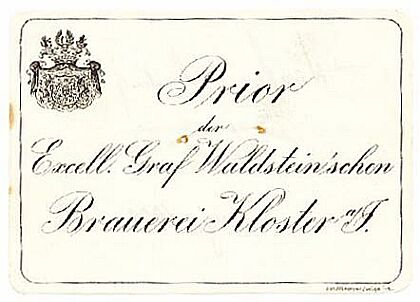 Prior
der
Excell. Graf Waldstein'schen
Brauerei Kloster a/I.